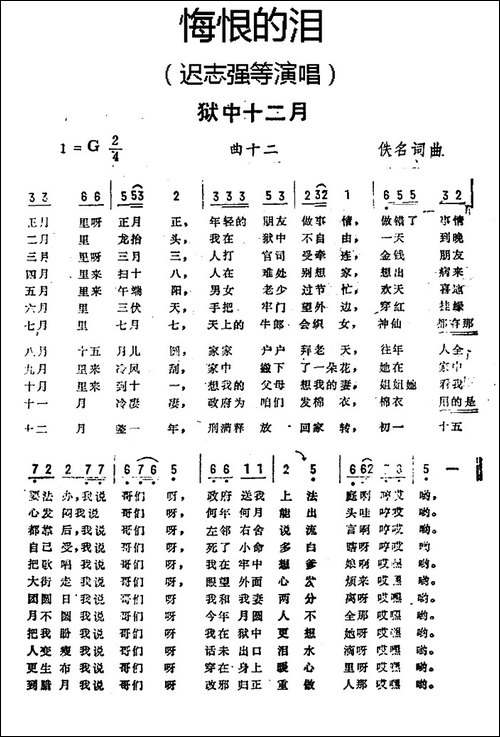 悔恨的泪
（迟志强等演唱）
狱中十二月
1=G 2/4
曲十二
佚名词曲
3 3 6 6 | 5 53 2 | 3 3 3 5 3 | 2 32 1 | 6 5 5 3 2 |
正月 里呀 正月 正，年轻的 朋友 做事 情，做错了 事情
二月 里 龙抬 头，我在 狱中 不自 由，一天 到晚
三月 里呀 三月 三，人打 官司 受牵 连，金钱 朋友
四月 里来 扫十 八，人在 难处 别想 家，想出 病来
五月 里来 午端 阳，男女 老少 过节 忙，欢天 喜地
六月 里 三伏 天，手把 牢门 望外 边，穿红 挂绿
七月 里 七月 七，天上的 牛郎 会织 女，神仙 都在那
八月 十五 月儿 圆，家家 户户 拜老 天，往年 人全
九月 里来 冷风 刮，家中 撇下 了一朵 花，她在 家中
十月 里来 到十 一，想我的 父母 想我的 妻，姐姐她 看我
十一 月 冷凄 凄，政府为 咱们 发棉 衣，棉衣 用的是
十二 月 整一 年，刑满释 放 回家 转，初一 十五
7 2 2 7 7 | 6 7 6 5 | 6 6 1 1 2 5 | 6 62 7 3 5 — ‖
要法 办，我说 哥们 呀，政府 送我 上 法 庭啊 哎哎 哟。
心发 闷我说 哥们 呀，何年 何月 能 出 头哇 哎哎 哟。
都靠 后，我说 哥们 呀，左邻 右舍 说 流 言啊 哎哎 哟。
自己 受，我说 哥们 呀，死了 小命 多 白 瞎呀 哎哎 哟。
把歌 唱我说 哥们 呀，我在 牢中 想 爹 娘啊 哎哎 哟。
大街 走我说 哥们 呀，眼望 外面 心 发 烦来 哎嘿 哟。
团圆 日我说 哥们 呀 我和 我妻 两 分 离呀 哎嘿 哟。
月不 圆我说 哥们 呀 今年 月圆 人 不 全那 哎嘿 哟。
把我 盼我说 哥们 呀 我在 狱中 更 想 她呀 哎嘿 哟。
人变 瘦我说 哥们 呀 话未 出口 泪 水 滴呀 哎嘿 哟。
更生 布我说 哥们 呀 穿在 身上 暖 心 里呀 哎嘿 哟。
到腊 月我说 哥们 呀 改邪 归正 重 做 人那 哎嘿 哟。